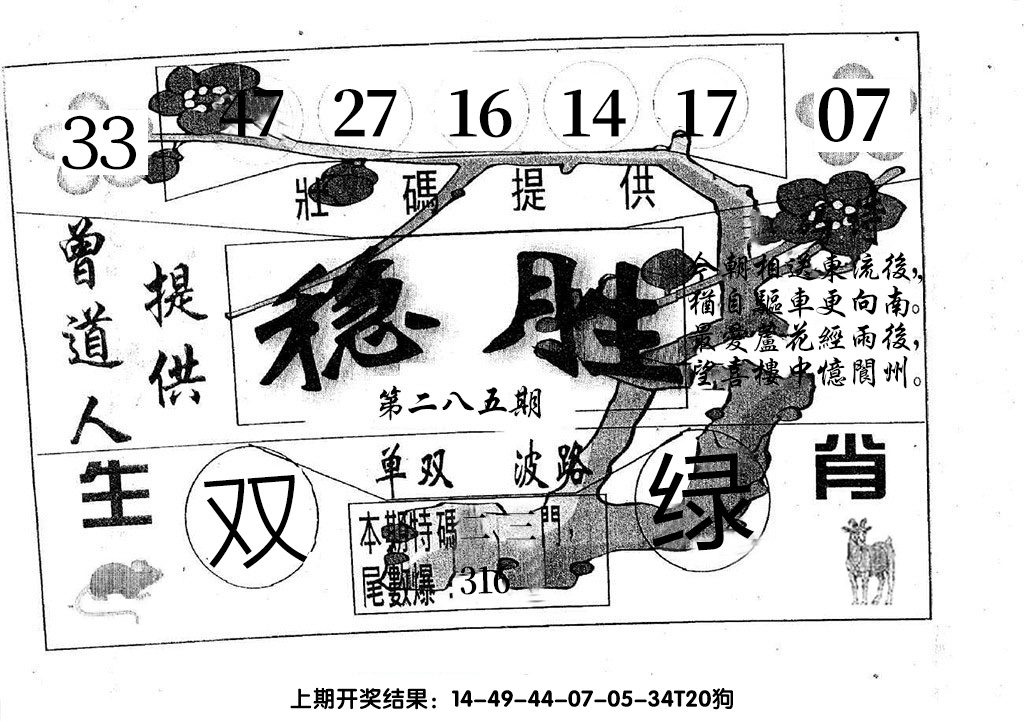 33 47 27 16 14 17 07
壯碼提供
曾道人
提供
稳胜
第二八五期
今朝相送東流後，
猶自驅車更向南。
最愛蘆花經雨後，
望喜樓中憶閬州。
单双 波路
生肖
双
绿
本期特碼二、三門，
尾數爆：316
上期开奖结果：14-49-44-07-05-34T20狗